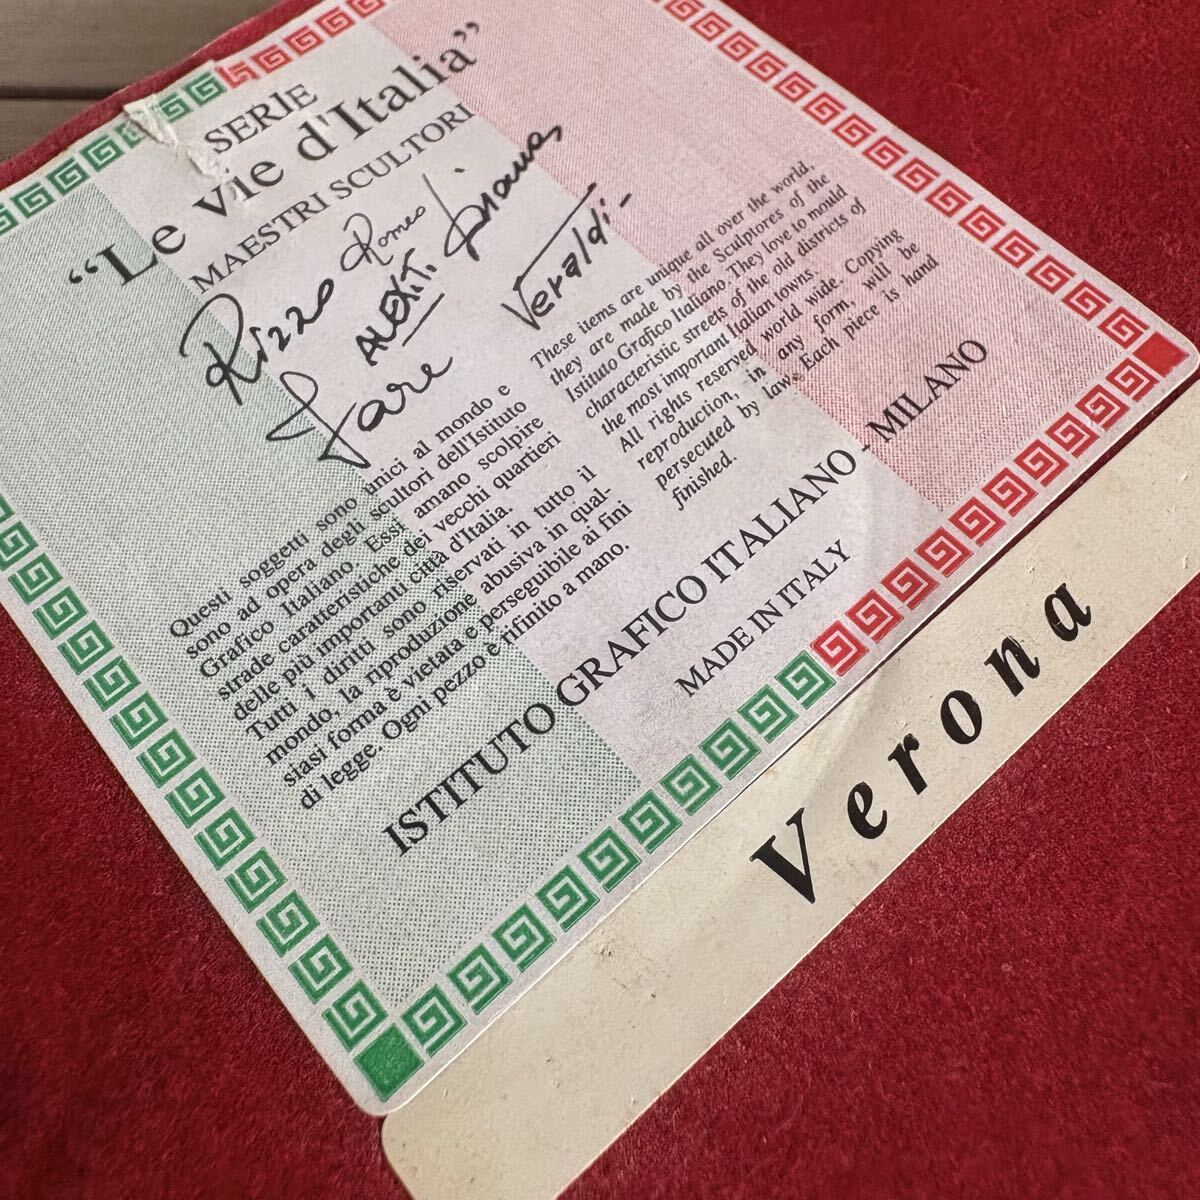 SERIE
“Le vie d'Italia”
MAESTRI SCULTORI
Rizzo Romeo
Veraldi
Questi soggetti sono unici al mondo e
sono ad opera degli scultori dell'Istituto
Grafico Italiano. Essi amano scolpire
strade caratteristiche dei vecchi quartieri
delle più importanti città d'Italia.
Tutti i diritti sono riservati in tutto il
mondo, la riproduzione abusiva in qual-
siasi forma è vietata e perseguibile ai fini
di legge. Ogni pezzo è rifinito a mano.
These items are unique all over the world,
they are made by the Sculptores of the
Istituto Grafico Italiano. They love to mould
characteristic streets of the old districts of
the most important Italian towns.
All rights reserved world wide. Copying
reproduction, in any form, will be
persecuted by law. Each piece is hand
finished.
ISTITUTO GRAFICO ITALIANO - MILANO
MADE IN ITALY
Verona